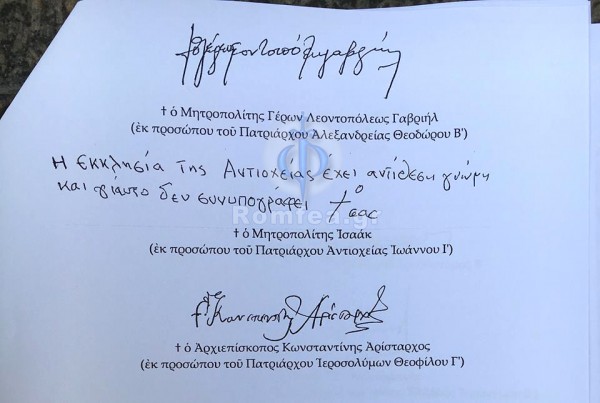 † ὁ Μητροπολίτης Γέρων Λεοντοπόλεως Γαβριήλ
(ἐκ προσώπου τοῦ Πατριάρχου Ἀλεξανδρείας Θεοδώρου Β')
Η ΕΚΚΛησία Της Αντιοχείας έχει αντίθεση γνώμη
και γιαυτο δεν συνυπογράφει + ο
Romfea.gr
† ὁ Μητροπολίτης Ἰσαάκ
(ἐκ προσώπου τοῦ Πατριάρχου Ἀντιοχείας Ἰωάννου Ι')
Κωνσταντίνης Αρίσταρχος
† ὁ Ἀρχιεπίσκοπος Κωνσταντίνης Ἀρίσταρχος
(ἐκ προσώπου τοῦ Πατριάρχου Ἱεροσολύμων Θεοφίλου Γ')